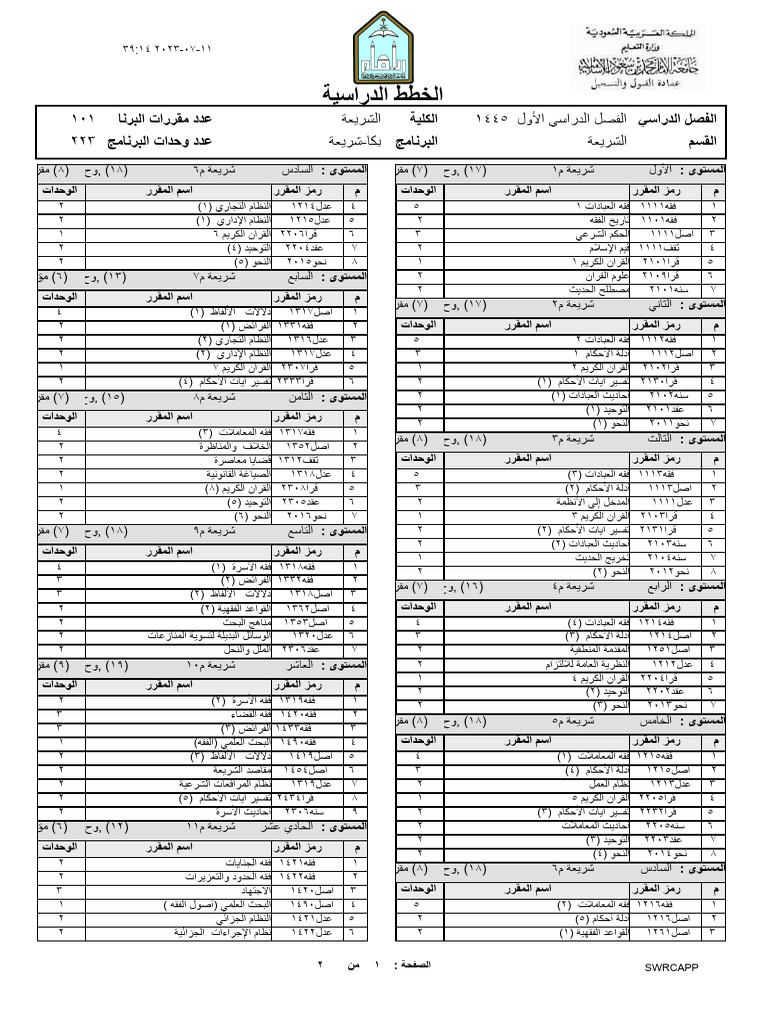 المملكة العربية السعودية
وزارة التعليم
جامعة الإمام محمد بن سعود الإسلامية
عمادة القبول والتسجيل
٣٩:١٤ ٢٠٢٣-٠٧-١١
الخطط الدراسية
الفصل الدراسي الفصل الدراسي الأول ١٤٤٥ الكلية الشريعة عدد مقررات البرنا ١٠١
القسم الشريعة البرنامج بكا-شريعة عدد وحدات البرنامج ٢٢٣
المستوى : الأول شريعة م١ (١٧) ,وح (٧) مقر
م رمز المقرر اسم المقرر الوحدات
١ فقه١١١١ فقه العبادات ١ ٥
٢ فقه١١٠١ تاريخ الفقه ٢
٣ اصل١١١١ الحكم الشرعي ٣
٤ ثقف١١١١ قيم الإسلام ٢
٥ قرا٢١٠١ القران الكريم ١ ١
٦ قرا٢١٠٩ علوم القران ٢
٧ سنه٢١٠١ مصطلح الحديث ٢
المستوى : الثاني شريعة م٢ (١٧) ,وح (٧) مقر
م رمز المقرر اسم المقرر الوحدات
١ فقه١١١٢ فقه العبادات ٢ ٥
٢ اصل١١١٢ أدلة الأحكام ١ ٣
٣ قرا٢١٠٢ القران الكريم ٢ ١
٤ قرا٢١٣٠ تفسير آيات الأحكام (١) ٢
٥ سنه٢١٠٢ أحاديث العبادات (١) ٢
٦ عقد٢١٠١ التوحيد (١) ٢
٧ نحو٢٠١١ النحو (١) ٢
المستوى : الثالث شريعة م٣ (١٨) ,وح (٨) مقر
م رمز المقرر اسم المقرر الوحدات
١ فقه١١١٣ فقه العبادات (٣) ٥
٢ اصل١١١٣ أدلة الأحكام (٢) ٣
٣ عدل١١١١ المدخل إلى الأنظمة ٢
٤ قرا٢١٠٣ القران الكريم ٣ ١
٥ قرا٢١٣١ تفسير آيات الأحكام (٢) ٢
٦ سنه٢١٠٣ أحاديث العبادات (٢) ٢
٧ سنه٢١٠٤ تخريج الحديث ١
٨ نحو٢٠١٢ النحو (٢) ٢
المستوى : الرابع شريعة م٤ (١٦) ,وح (٧) مقر
م رمز المقرر اسم المقرر الوحدات
١ فقه١٢١٤ فقه العبادات (٤) ٤
٢ اصل١٢١٤ أدلة الأحكام (٣) ٣
٣ اصل١٢٥١ المقدمة المنطقية ٢
٤ عدل١٢١٢ النظرية العامة للالتزام ٢
٥ قرا٢٢٠٤ القران الكريم ٤ ١
٦ عقد٢٢٠٢ التوحيد (٢) ٢
٧ نحو٢٠١٣ النحو (٣) ٢
المستوى : الخامس شريعة م٥ (١٨) ,وح (٨) مقر
م رمز المقرر اسم المقرر الوحدات
١ فقه١٢١٥ فقه المعاملات (١) ٤
٢ اصل١٢١٥ أدلة الأحكام (٤) ٣
٣ عدل١٢١٣ نظام العمل ٢
٤ قرا٢٢٠٥ القران الكريم ٥ ١
٥ قرا٢٢٣٢ تفسير آيات الأحكام (٣) ٢
٦ سنه٢٢٠٥ أحاديث المعاملات ٢
٧ عقد٢٢٠٣ التوحيد (٣) ٢
٨ نحو٢٠١٤ النحو (٤) ٢
المستوى : السادس شريعة م٦ (١٨) ,وح (٨) مقر
م رمز المقرر اسم المقرر الوحدات
١ فقه١٢١٦ فقه المعاملات (٢) ٥
٢ اصل١٢١٦ أدلة أحكام (٥) ٢
٣ اصل١٢٦١ القواعد الفقهية (١) ٢
المستوى : السادس شريعة م٦ (١٨) ,وح (٨) مقر
م رمز المقرر اسم المقرر الوحدات
٤ عدل١٢١٤ النظام التجاري (١) ٢
٥ عدل١٢١٥ النظام الإداري (١) ٢
٦ قرا٢٢٠٦ القران الكريم ٦ ١
٧ عقد٢٢٠٤ التوحيد (٤) ٢
٨ نحو٢٠١٥ النحو (٥) ٢
المستوى : السابع شريعة م٧ (١٣) ,وح (٦) مق
م رمز المقرر اسم المقرر الوحدات
١ اصل١٣١٧ دلالات الألفاظ (١) ٤
٢ فقه١٣٣١ الفرائض (١) ٢
٣ عدل١٣١٦ النظام التجاري (٢) ٢
٤ عدل١٣١٧ النظام الإداري (٢) ٢
٥ قرا٢٣٠٧ القران الكريم ٧ ١
٦ قرا٢٣٣٣ تفسير آيات الأحكام (٤) ٢
المستوى : الثامن شريعة م٨ (١٥) ,وح (٧) مقر
م رمز المقرر اسم المقرر الوحدات
١ فقه١٣١٧ فقه المعاملات (٣) ٤
٢ اصل١٣٥٢ الخلاف والمناظرة ٢
٣ ثقف١٣١٢ قضايا معاصرة ٢
٤ عدل١٣١٨ الصياغة القانونية ٢
٥ قرا٢٣٠٨ القران الكريم (٨) ١
٦ عقد٢٣٠٥ التوحيد (٥) ٢
٧ نحو٢٠١٦ النحو (٦) ٢
المستوى : التاسع شريعة م٩ (١٨) ,وح (٧) مقر
م رمز المقرر اسم المقرر الوحدات
١ فقه١٣١٨ فقه الأسرة (١) ٤
٢ فقه١٣٣٢ الفرائض (٢) ٣
٣ اصل١٣١٨ دلالات الألفاظ (٢) ٣
٤ اصل١٣٦٢ القواعد الفقهية (٢) ٢
٥ اصل١٣٥٣ مناهج البحث ٢
٦ عدل١٣٢٠ الوسائل البديلة لتسوية المنازعات ٢
٧ عقد٢٣٠٦ الملل والنحل ٢
المستوى : العاشر شريعة م١٠ (١٩) ,وح (٩) مقر
م رمز المقرر اسم المقرر الوحدات
١ فقه١٣١٩ فقه الأسرة (٢) ٢
٢ فقه١٤٢٠ فقه القضاء ٣
٣ فقه١٤٣٣ الفرائض (٣) ٣
٤ فقه١٤٩٠ البحث العلمي (الفقه) ١
٥ اصل١٤١٩ دلالات الألفاظ (٣) ٢
٦ اصل١٤٥٤ مقاصد الشريعة ٢
٧ عدل١٣١٩ نظام المرافعات الشرعية ٢
٨ قرا٢٤٣٤ تفسير آيات الأحكام (٥) ٢
٩ سنه٢٣٠٦ أحاديث الأسرة ٢
المستوى : الحادي عشر شريعة م١١ (١٢) ,وح (٦) مق
م رمز المقرر اسم المقرر الوحدات
١ فقه١٤٢١ فقه الجنايات ٢
٢ فقه١٤٢٢ فقه الحدود والتعزيرات ٢
٣ اصل١٤٢٠ الاجتهاد ٣
٤ اصل١٤٩٠ البحث العلمي (أصول الفقه ) ١
٥ عدل١٤٢١ النظام الجزائي ٢
٦ عدل١٤٢٢ نظام الإجراءات الجزائية ٢
الصفحة : ١ من ٢
SWRCAPP